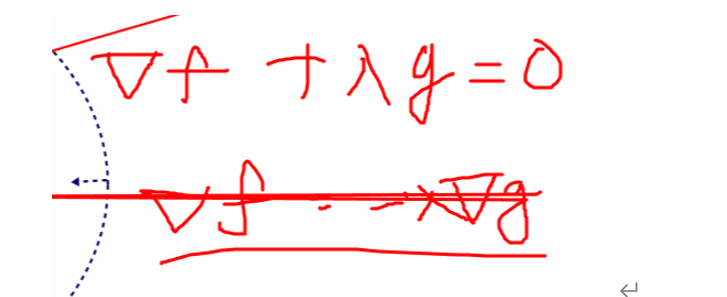 ∇f + λg = 0
∇f = -λ∇g